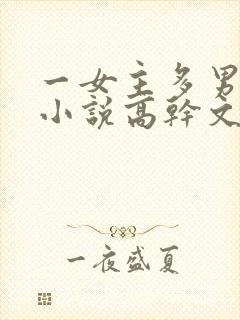 一女主多男
小說高幹文
一夜盛夏